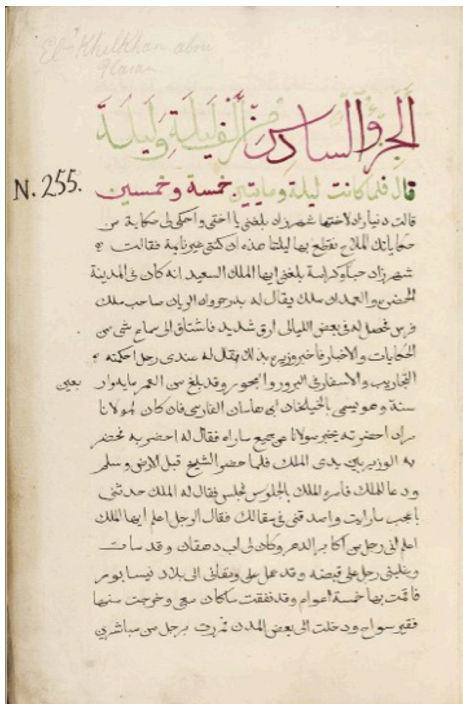 El Khilkhan abou
Hasan
الجزؤ السادس من ألف ليلة وليلة
N. 255.
قال فلما كانت ليلة ومايتين خمسة وخمسين
قالت دنيازاد لاختها شهرزاد بلغنى يا اختى واحكى لى حكاية من
حكاياتك الملاح نقطع بها ليلتنا هذه ان كنتى غير نايمة فقالت
شهرزاد حبا وكرامة بلغنى ايها الملك السعيد انه كان فى المدينة
الحضرى والعمدان ملك يقال له بدرجوان الريان صاحب ملك
فرس فحصل له فى بعض الليالى ارق شديد فاشتاق الى سماع شى من
الحكايات والاخبار فاخبر وزيره بذلك فقال له عندى رجل احكمته
التجاريب والاسفار فى البرور والبحور وقد بلغ من العمر ما
سنة وهو يسمى بالخيلخان ابى هاسان الفارسى فان كان لمولانا
مراد احضرته يخبر مولانا عن جميع ماراه فقال له احضر به فحضر
به الوزير بين يدى الملك فلما حضر الشيخ قبل الارض وسلم
ودعا للملك فامره الملك بالجلوس فجلس فقال له الملك حدثنى
باعجب مارايت واصدقنى فى مقالك فقال الرجل اعلم ايها الملك
اعلم انى رجل من اكابر الدهر وكان لى اب دهقان وقد مات
وغلبنى رجل على قبضه وقد حمل على ومقالى الى بلاد نيسابور
فاقمت بها خمسة اعوام وقد نفقت ماكان معى وخرجت منها
فقير سواح ودخلت الى بعض المدن فمررت برجل من مباشرى